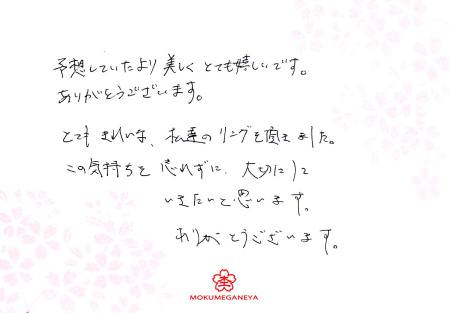 予想していたより美しくとても嬉しいです。
ありがとうございます。
とてもきれいな、私達のリングを頂きました。
この気持ちを忘れずに、大切にして
いきたいと思います。
ありがとうございます。
杢
MOKUMEGANEYA